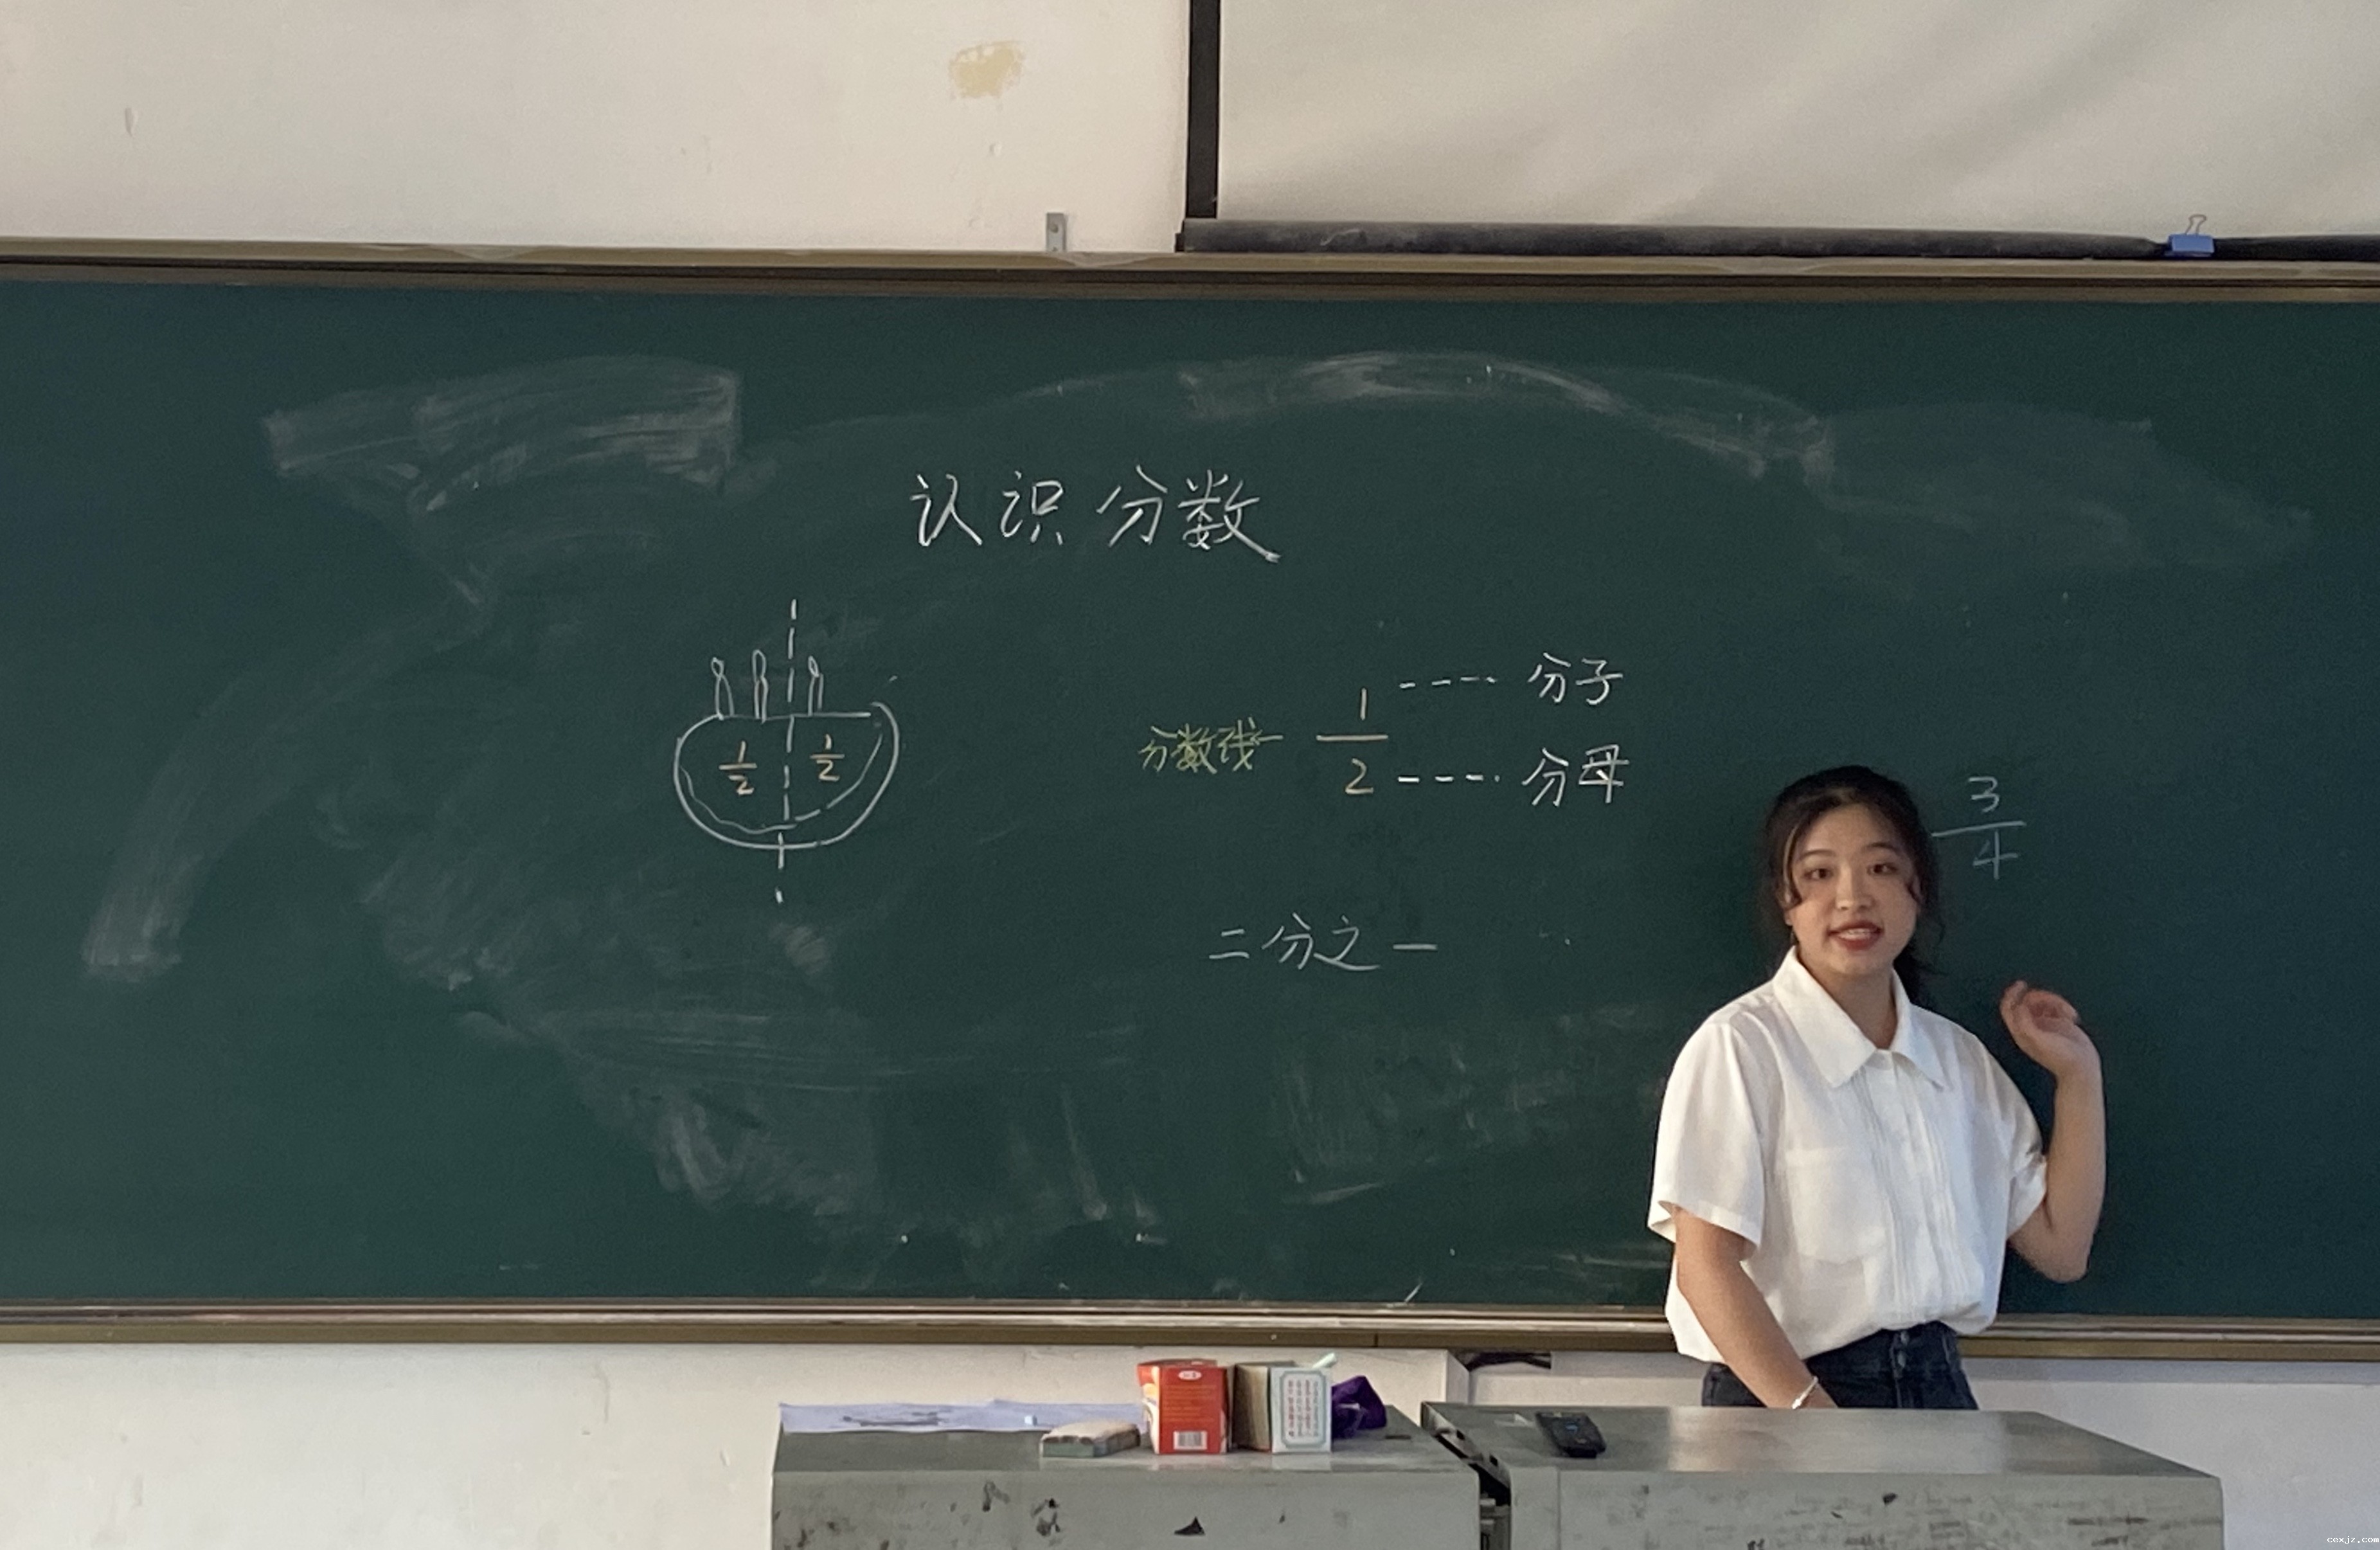 认识分数
1/2 1/2
分数线 1/2 分子
分母
3/4
二分之一
cexjz.com